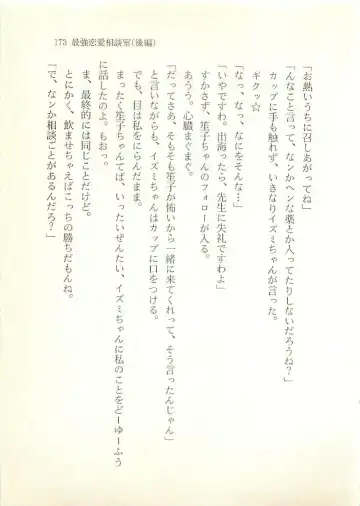 173 最強恋愛相談室(後編)
「お熱いうちに召しあがってね」
「んなこと言って、なンかヘンな薬とか入ってたりしないだろうね？」
カップに手も触れず、いきなりイズミちゃんが言った。
ギクッ☆
「なっ、なっ、なにをそんな…」
「いやですわ。出海ったら、先生に失礼ですわよ」
すかさず、笙子ちゃんのフォローが入る。
あうう。心臓まぐまぐ。
「だってさあ、そもそも笙子が怖いから一緒に来てくれって、そう言ったんじゃん」
と言いながらも、イズミちゃんはカップに口をつける。
でも、目は私をにらんだまま。
まったく笙子ちゃんてば、いったいぜんたい、イズミちゃんに私のことをどーゆーふう
に話したのよ。もおっ。
ま、最終的には同じことだけど。
とにかく、飲ませちゃえばこっちの勝ちだもんね。
「で、なンか相談ごとがあるんだろ？」